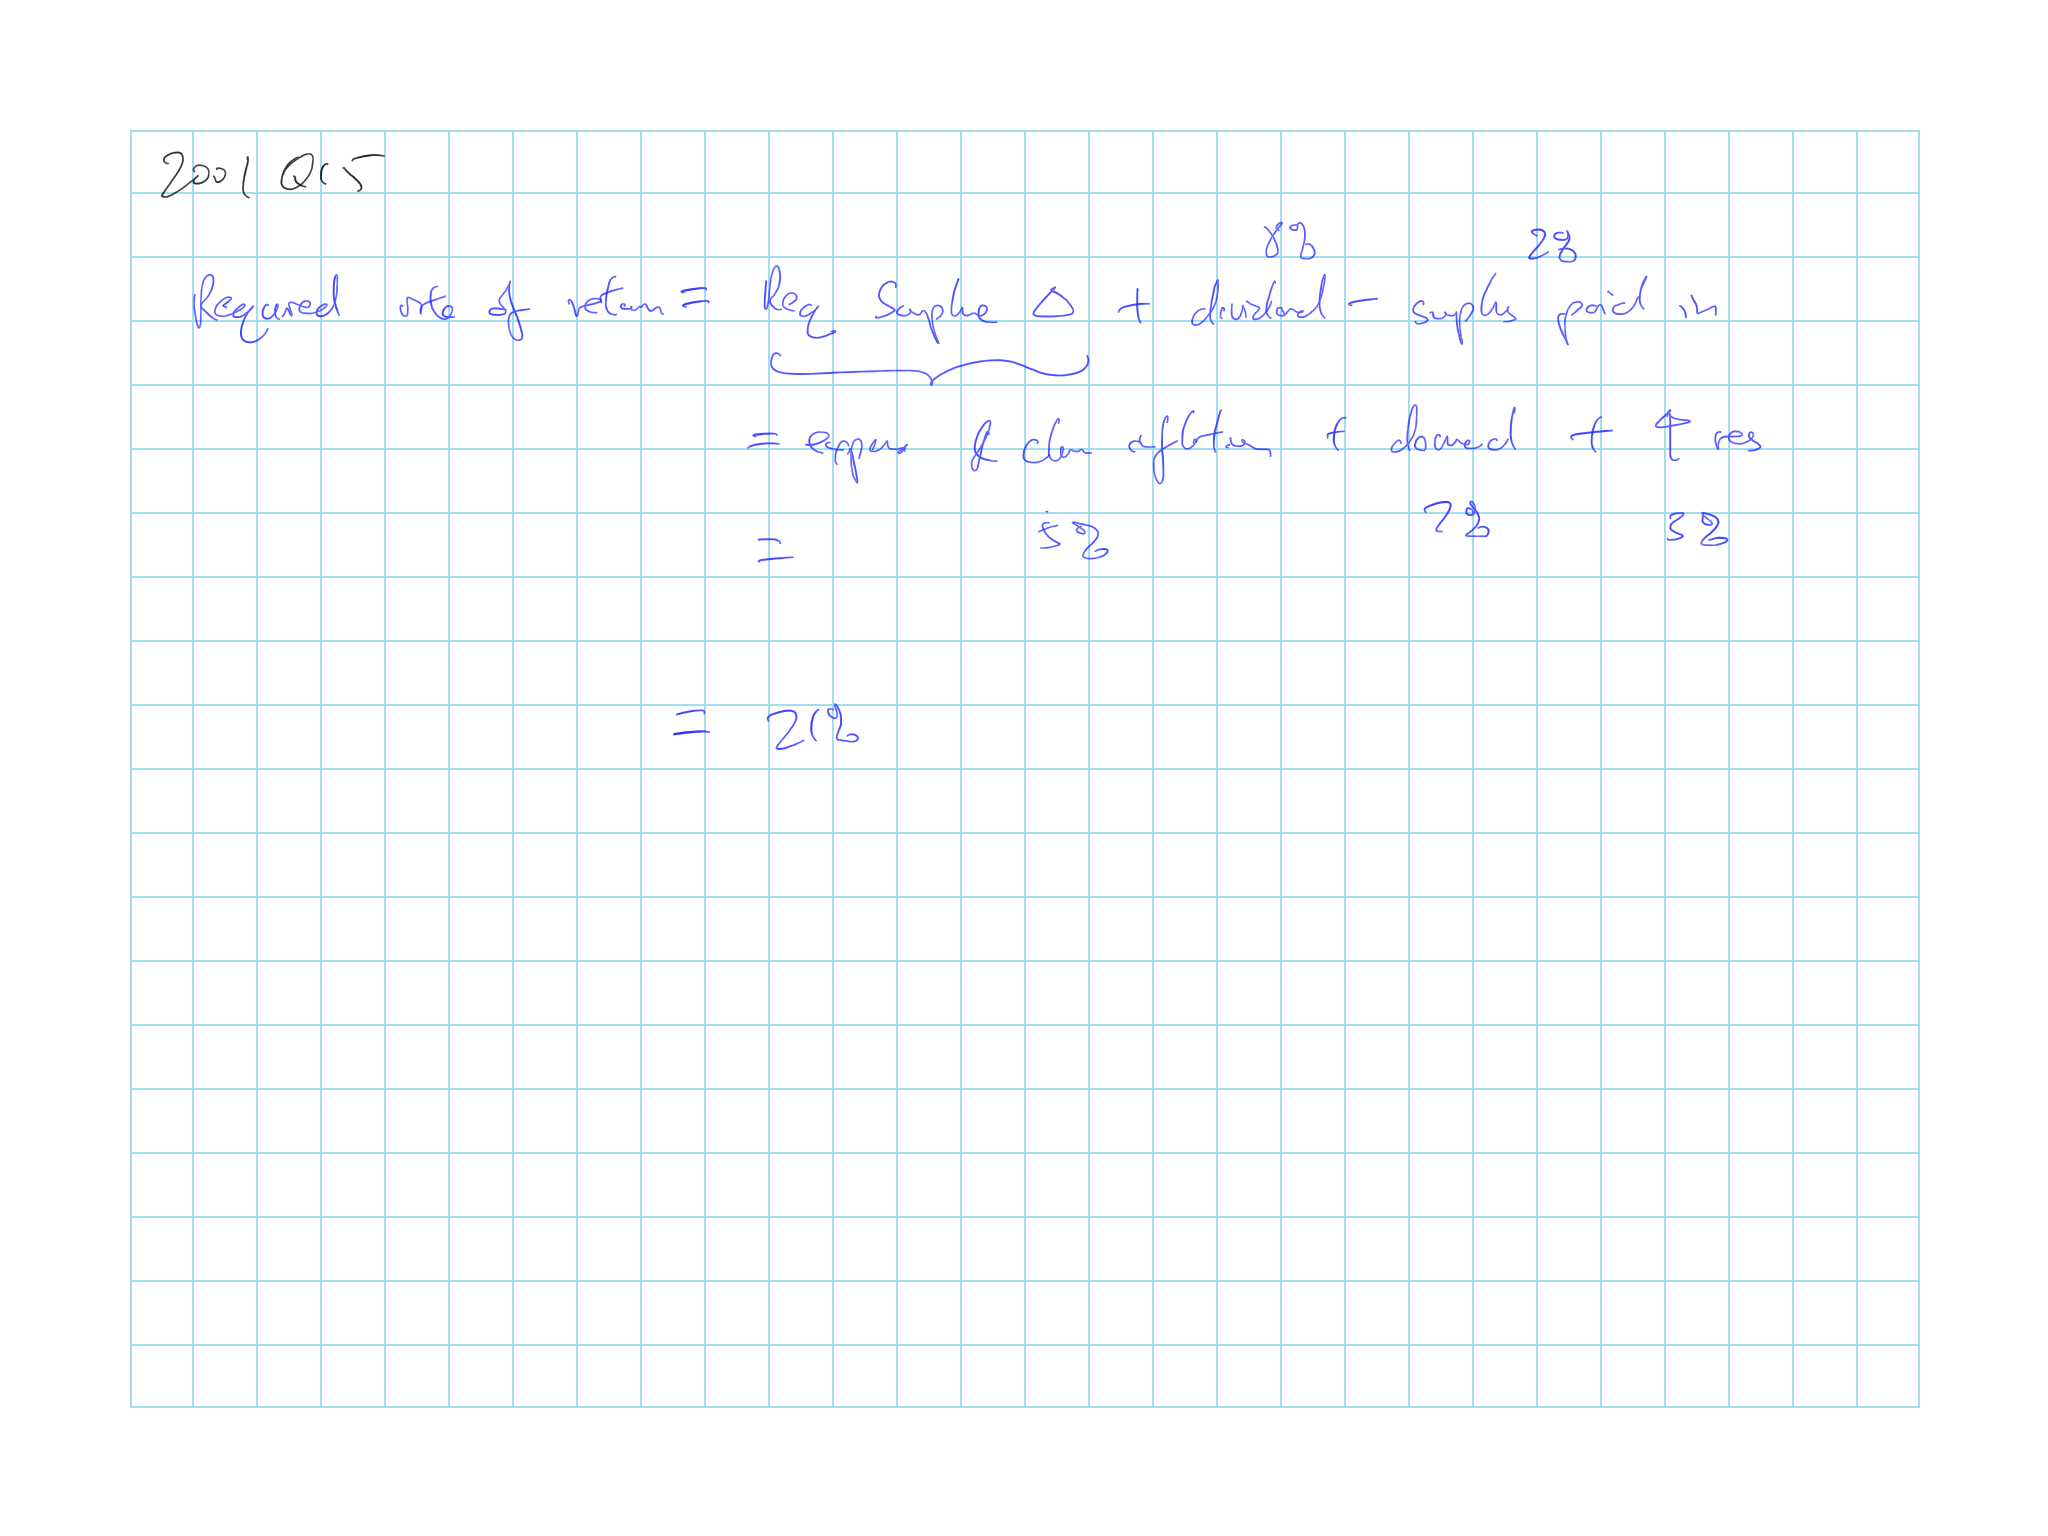 2001 Q15
8% 2%
Required rate of return = Req Surplus Δ + dividend - surplus paid in
= expense & claim inflation + demand + ↑ res
= 5% 7% 3%
= 21%